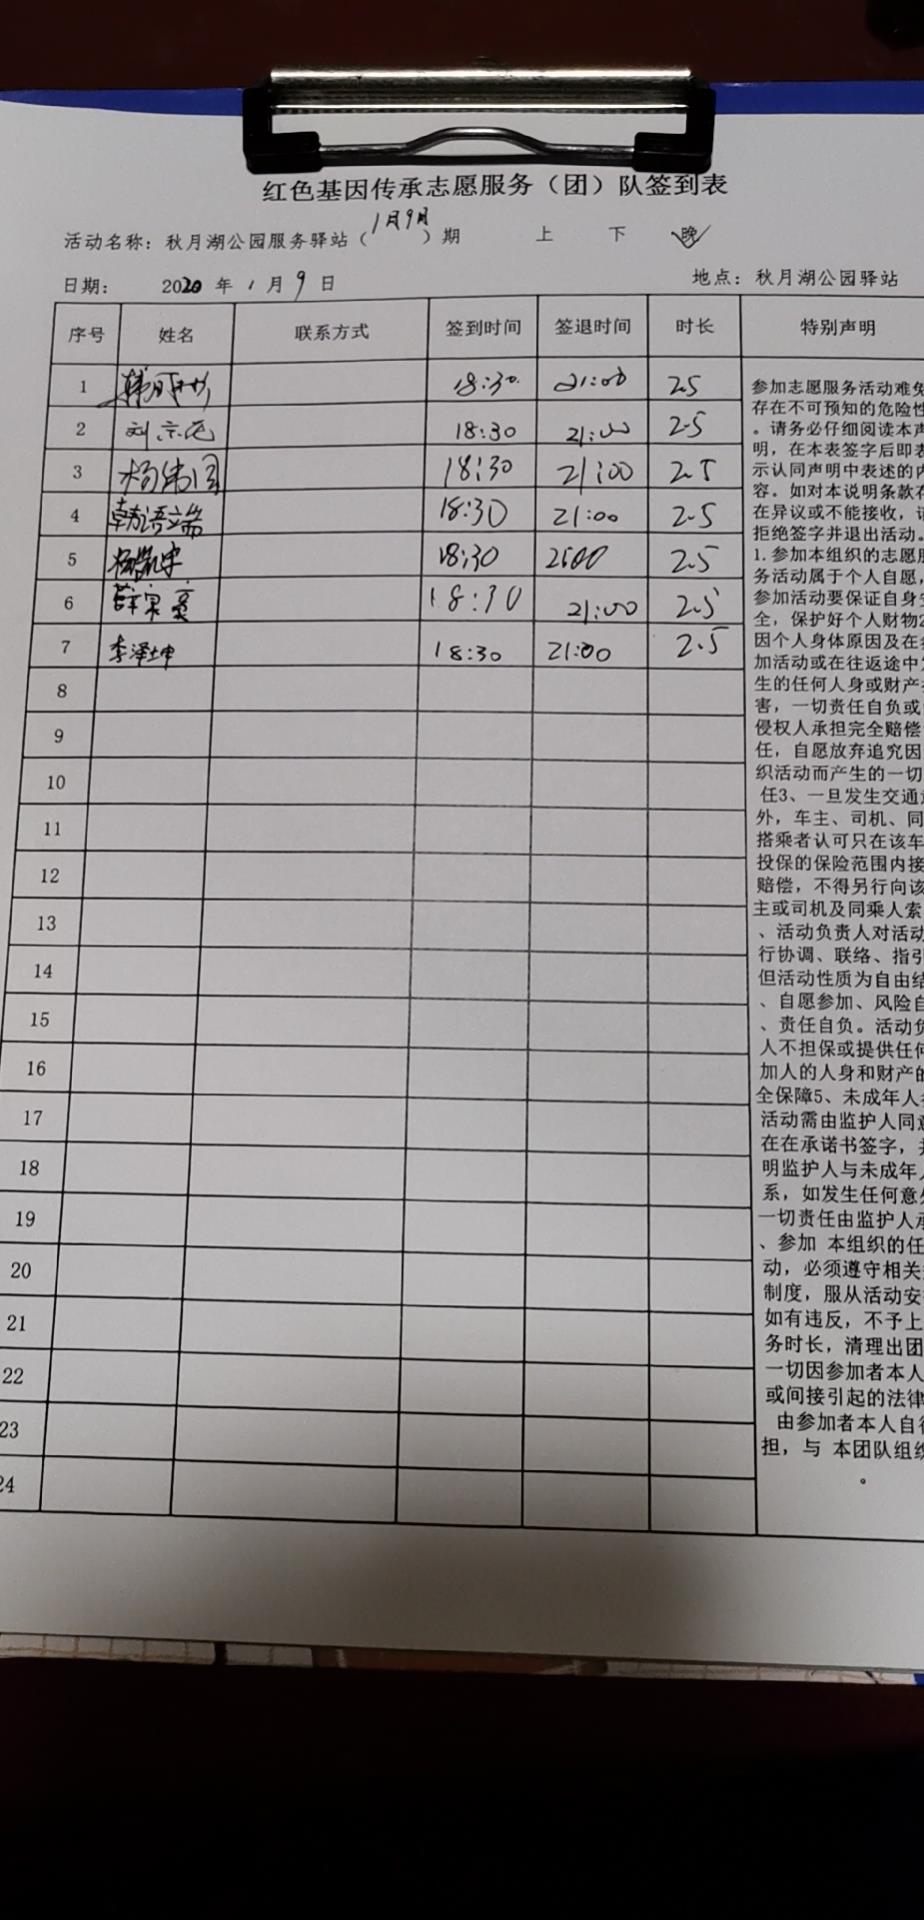 红色基因传承志愿服务（团）队签到表
活动名称：秋月湖公园服务驿站（1月9月）期 上 下 晚
日期： 2020 年 1 月 9 日 地点：秋月湖公园驿站
序号 姓名 联系方式 签到时间 签退时间 时长 特别声明
1 18:30 21:00 2.5
2 刘 18:30 21:00 2.5
3 杨伟国 18:30 21:00 2.5
4 韩语端 18:30 21:00 2.5
5 18:30 2100 2.5
6 18:30 21:00 2.5
7 李泽坤 18:30 21:00 2.5
8
9
10
11
12
13
14
15
16
17
18
19
20
21
22
23
24
参加志愿服务活动难免
存在不可预知的危险性
。请务必仔细阅读本声
明，在本表签字后即表
示认同声明中表述的内
容。如对本说明条款存
在异议或不能接收，请
拒绝签字并退出活动。
1.参加本组织的志愿服
务活动属于个人自愿，
参加活动要保证自身安
全，保护好个人财物2
因个人身体原因及在参
加活动或在往返途中发
生的任何人身或财产损
害，一切责任自负或由
侵权人承担完全赔偿
任，自愿放弃追究因
织活动而产生的一切
任3、一旦发生交通意
外，车主、司机、同
搭乘者认可只在该车
投保的保险范围内接
赔偿，不得另行向该
主或司机及同乘人索
、活动负责人对活动
行协调、联络、指引
但活动性质为自由结
、自愿参加、风险自
、责任自负。活动负
人不担保或提供任何
加人的人身和财产的
全保障5、未成年人参
活动需由监护人同意
在在承诺书签字，并
明监护人与未成年人
系，如发生任何意外
一切责任由监护人承
、参加 本组织的任
动，必须遵守相关
制度，服从活动安
如有违反，不予上
务时长，清理出团
一切因参加者本人
或间接引起的法律
由参加者本人自行
担，与 本团队组织
。